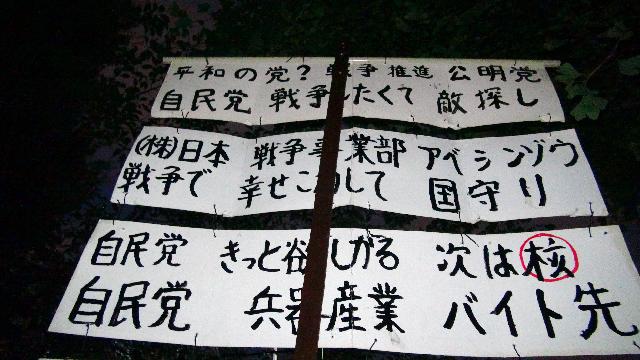 平和の党? 戦争推進 公明党
自民党 戦争したくて 敵探し
(株)日本 戦争事業部 アベシンゾウ
戦争で 幸せこわして 国守り
自民党 きっと欲しがる 次は核
自民党 兵器産業 バイト先